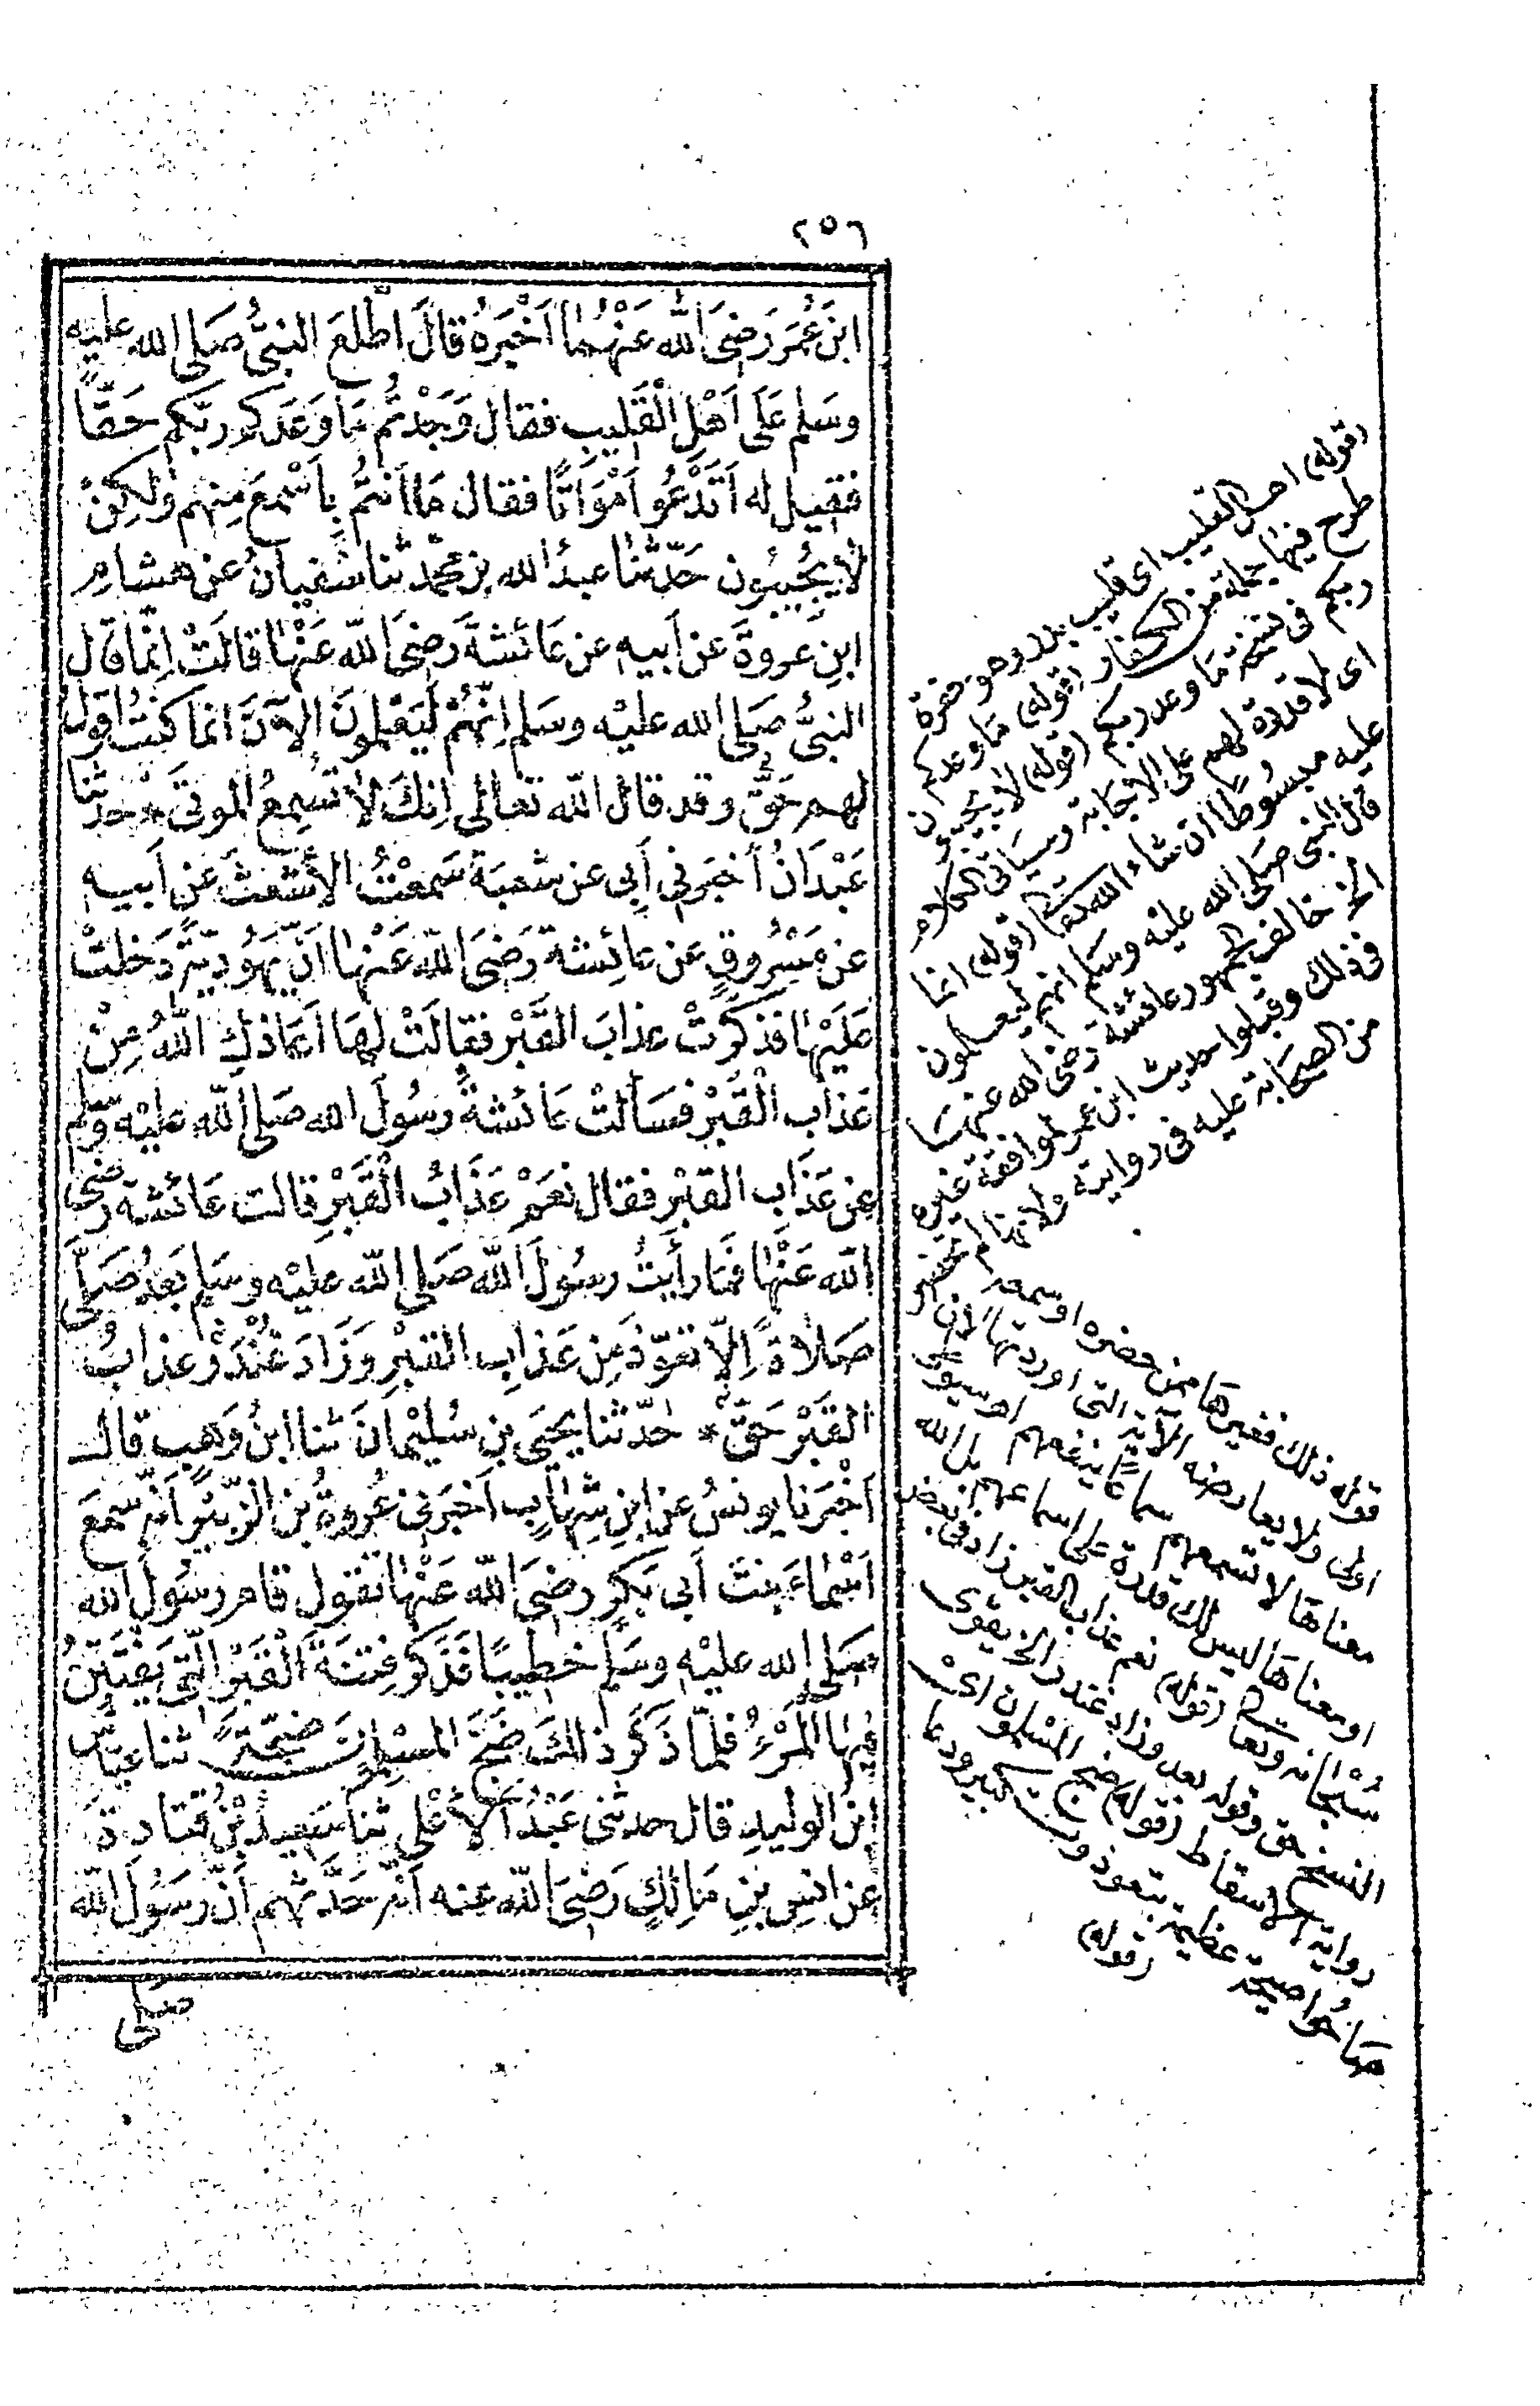 ٢٥٦
ابنَ عُمَرَ رَضِىَ اللّٰه عَنْهُمَا اَخْبَرَهُ قَالَ اطَّلَعَ النبىُّ صَلى الله عليه
وسَلم عَلَى اَهْلِ الْقَلِيبِ فقال وَجَدْتُم مَا وَعَدَكم ربّكم حَقًّا
فقيل له اَتَدْعُو اَمْوَاتًا فقال مَا اَنتُم بِاَسْمَعَ مِنهم ولكِنْ
لا يُجِيبُون حَدّثنا عبدُ الله بن محمّد ثنا سُفيانُ عن هشامِ
ابنِ عروةَ عن اَبيهِ عن عَائشةَ رَضِىَ اللّٰه عَنْهَا قالَتْ اِنّما قال
النبىُّ صَلى الله عليْه وسَلم اِنّهُمْ لَيَعْلمونَ الآنَ انّما كنتُ اَقولُ
لهم حَقٌّ وقد قال اللّٰه تعالى اِنكَ لا تُسْمِعُ الموتَى * حَدثنا
عَبْدَانُ اَخبَرنِى اَبِى عن شعبَةَ سَمعْتُ الاَشْعَثَ عَن اَبيه
عن مَسْرُوقٍ عَن عائِشةَ رَضَىَ اللّٰه عَنْهَا اَنّ يَهُودِيّةً دَخلتْ
عَلَيْهَا فذكَرَتْ عذابَ القَبْرِ فقالَتْ لهَا اَعَاذكِ اللّٰهُ مِنْ
عَذابِ الْقَبْرِ فسَاَلتْ عَائشةُ رسُولَ الله صَلى اللّٰه عليْه وسَلم
عن عَذَابِ القبْرِ فقال نعَمْ عَذَابُ الْقَبْرِ قالت عَائشة رضى
اللّٰه عَنْهَا فمَا رأَيتُ رسُولَ اللّٰه صَلى اللّٰه عليْه وسَلم بَعدُ صَلَّى
صَلاةً اِلّا تعَوّذَ مِن عَذابِ القبْرِ وزَادَ غُنْدَرٌ عذابُ
القَبْرِ حَقٌّ * حَدّثنا يَحْيَى بن سُلَيْمانَ ثنا ابنُ وَهبٍ قال
اَخْبرَنا يونسُ عن ابنِ شِهَابٍ اَخبَرَنى عُروةُ بن الزبَيْرِ اَنّه سَمعَ
اَسْماءَ بِنتَ اَبى بَكرٍ رضىَ اللّٰه عَنْهَا تقول قام رسُولُ الله
صَلى الله عليْه وسَلم خطيبًا فَذَكرَ فِتنَةَ الْقَبْرِ الّتى يَفْتَتِنُ
فِيهَا الْمَرْءُ فلمّا ذَكَرَ ذلك ضَجَّ المسْلِمونَ ضَجّةً ثنا عيّاش
ابن الوليدِ قال حدثنى عَبْدُ الاَعْلى ثنا سَعِيدُ عَنْ قتادةَ
عن انسِ بنِ مَالِكٍ رَضِىَ اللّٰه عنه اَنّه حَدَّثهم اَنّ رَسُولَ اللّٰه
صلى
(قوله) اهل القليب اى قليب بدر وهو حفرة
طرح فيها جملة من الكفار (قوله) مَا وعدكم
ربكم فى نسخة مَا وعد ربكم (قوله) لا يجيبون
اى لا قدرة لهم على الاجابة وسيأتى الكلام
عليه مبسُوطًا ان شاء الله تعالى (قوله) انما
قال النبى صَلى الله عليْه وسَلم انهم ليعلمون
الخ خالف الجمهور عائشة رضى الله عنهَا
فى ذلك وقبلوا حديث ابن عمر لموافقة غيره
من الصحَابة عليه فى روايته ولانهَا لم تحضر
قوله ذلك فغيرهَا ممن حضره او سمعه
اولى ولا يعارضه الآية التى اوردتهَا لان
معناهَا لا تسمعهم سماعًا ينفعهم او
او معناهَا ليس لك قدرة على اسماعهم بل الله
سبْحانه وتعالى (قوله) نعم عذاب القبر زاد فى بعض
النسخ حق وقوله بعد وزاد غندر الخ يقوى
رواية الاسقاط (قوله) ضج المسْلمون اى
صَاحُوا صيحة عظيمة بتعوذ وتكبير ودعا
(قوله)